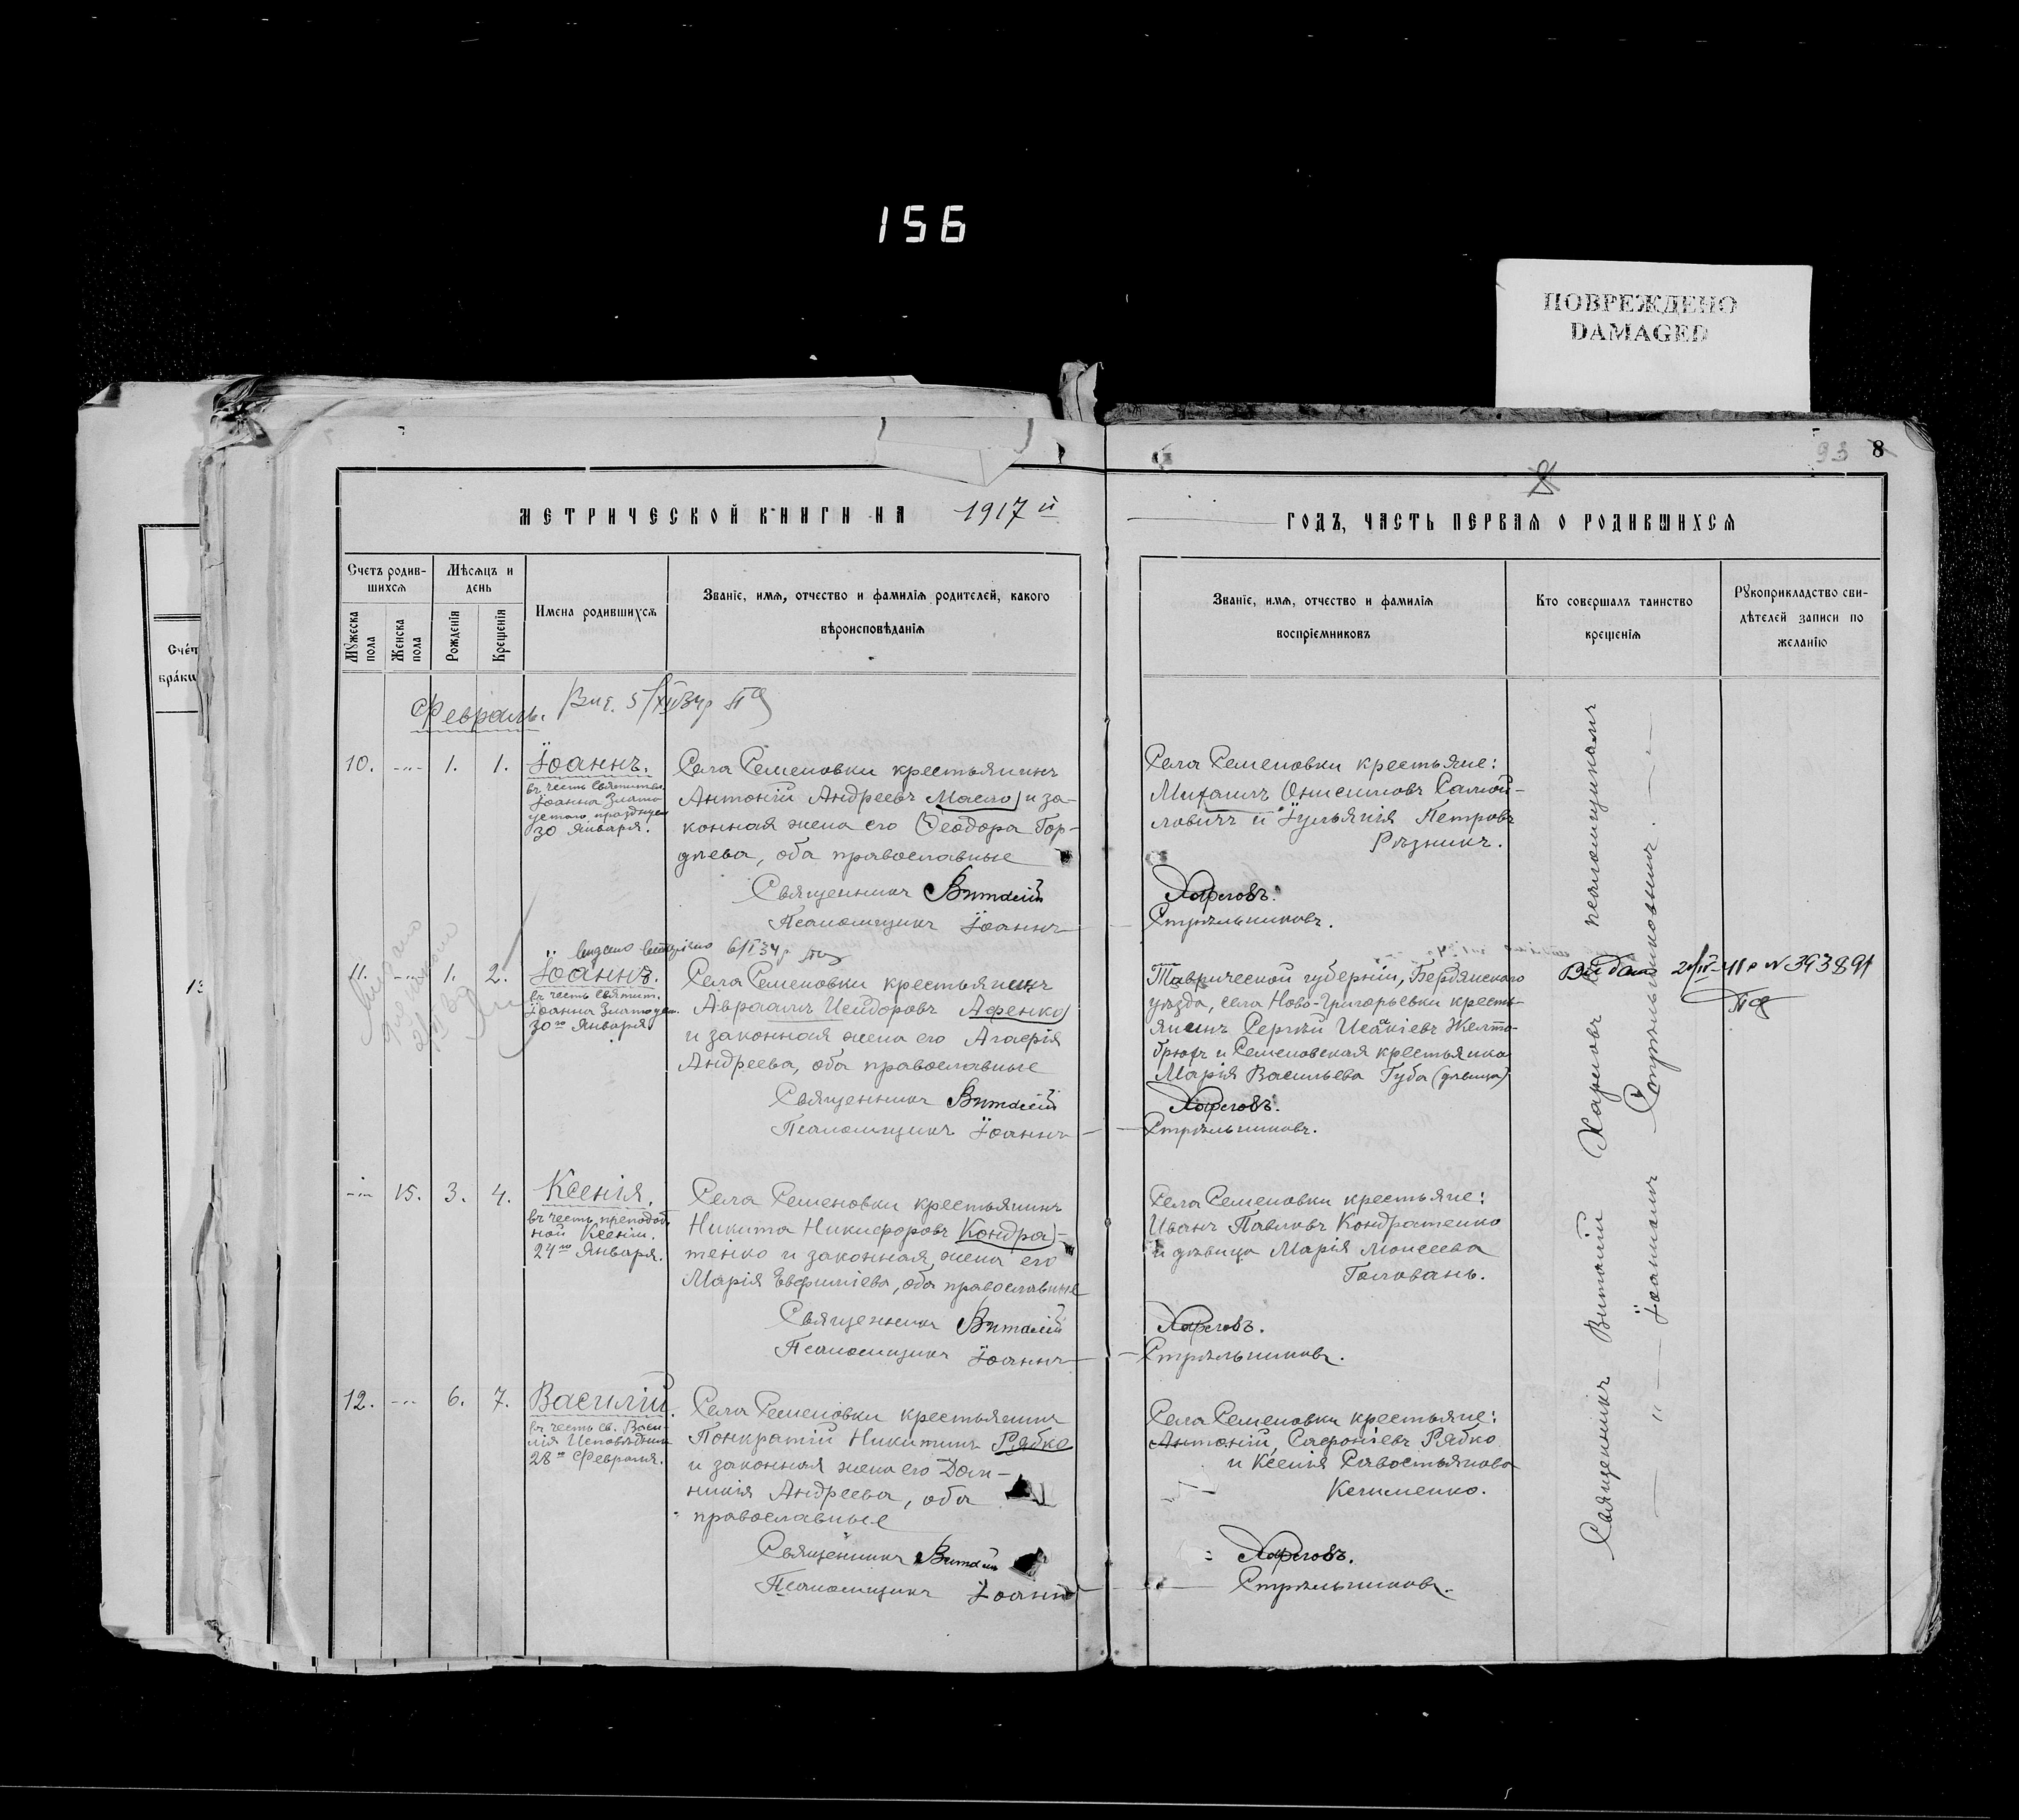 156
ПОВРЕЖДЕНО
DAMAGED
93 8
МЕТРИЧЕСКОЙ КНИГИ НА 1917 й
ГОДЪ, ЧАСТЬ ПЕРВАЯ О РОДИВШИХСЯ
Счетъ родив-
шихся
Мужеска пола
Женска пола
Мѣсяцъ и
день
Рожденія
Крещенія
Имена родившихся
Званіе, имя, отчество и фамилія родителей, какого
вѣроисповѣданія
Званіе, имя, отчество и фамилія
воспріемниковъ
Кто совершалъ таинство
крещенія
Рукоприкладство сви-
дѣтелей записи по
желанію
Счет
браки
13
Февраль.
10. 1. 1. Іоаннъ.
въ честь Святителя
Іоанна Злато
устаго, празднуем
30 Января.
Села Семеновки крестьянинъ
Антоній Андреевъ Масло и за-
конная жена его Ѳеодора Гор-
дѣева, оба православные
Священникъ Виталій
Псаломщикъ Іоаннъ
Села Семеновки крестьяне:
Михаилъ Онисимовъ Самой-
ловичъ и Іуліанія Петровъ
Рѣзникъ.
Харговъ.
Стрѣльниковъ.
11. 1. 2. Іоаннъ.
въ честь Святит.
Іоанна Златоуст.
30го Января
Села Семеновки крестьянинъ
Авраамъ Исидоровъ Афенко
и законная жена его Агафія
Андреева, оба православные
Священникъ Виталій
Псаломщикъ Іоаннъ
Таврической губерніи, Бердянского
уѣзда, села Ново-Григорьевки кресть-
янинъ Сергѣй Исаакіевъ Желто-
брюхъ и Семеновская крестьянка
Марія Васильева Губа (дѣвица)
Харговъ.
Стрѣльниковъ.
15. 3. 4. Ксенія.
въ честь преподоб
ной Ксеніи.
24го Января.
Села Семеновки крестьянинъ
Никита Никифоровъ Кондра-
тенко и законная жена его
Марія Евфиміева, оба православные
Священникъ Виталій
Псаломщикъ Іоаннъ
Села Семеновки крестьяне:
Иванъ Павловъ Кондратенко
и дѣвица Марія Моисеева
Головань.
Харговъ.
Стрѣльниковъ.
12. 6. 7. Василій.
въ честь св. Васи-
лія Исповѣдника
28го Февраля.
Села Семеновки крестьянинъ
Понкратій Никитинъ Рябко
и законная жена его Дом-
никія Андреева, оба
православные
Священникъ Виталій
Псаломщикъ Іоаннъ
Села Семеновки крестьяне:
Антоній Сафоніевъ Рябко
и Ксенія Савостьянова
Клименко.
Харговъ.
Стрѣльниковъ.
Священникъ Виталій Харговъ псаломщикомъ
Іоанномъ Стрѣльниковымъ.